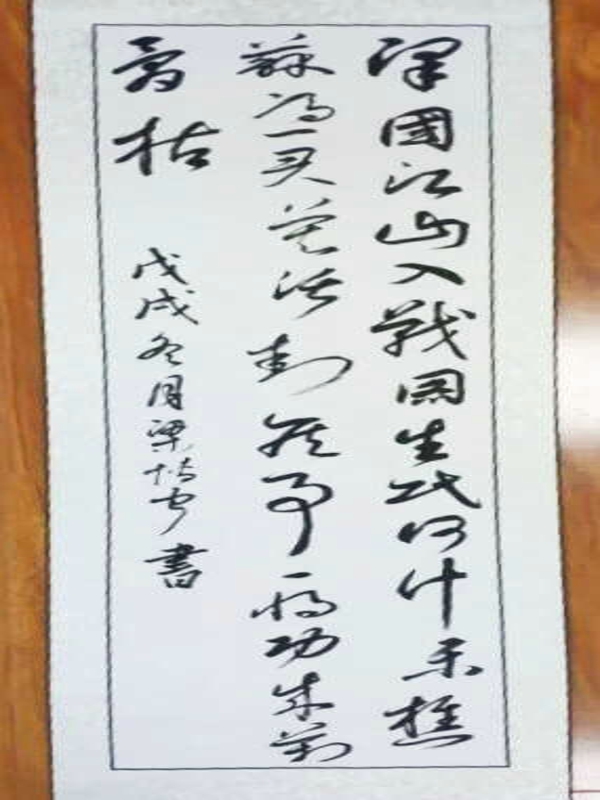 泽國江山入戰图生民何计乐樵
蘇凭君莫话封侯事一将功成萬
骨枯
戊戌冬月梁書